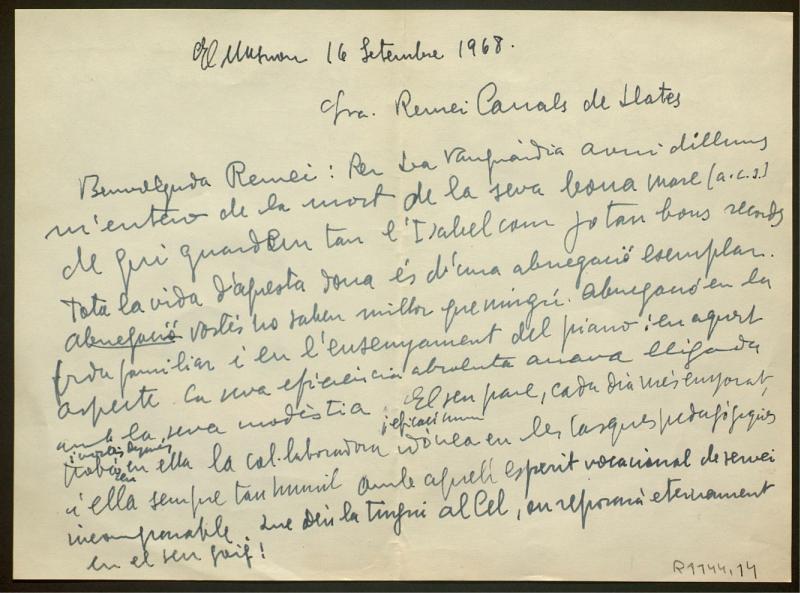 El Masnou 16 Setembre 1968.
Sra. Remei Canals de Llates
Benvolguda Remei: Per La Vanguàrdia avui dilluns
m'entero de la mort de la seva bona mare (a.c.s.)
de qui guardem tan l'Isabel com jo tan bons records
Tota la vida d'aquesta dona és d'una abnegació exemplar.
Abnegació vostès ho saben millor que ningú. Abnegació en la
familiar i en l'ensenyament del piano i en aquest
aspecte la seva eficiència absoluta anava lligada
amb la seva modèstia. El seu pare, cada dia més enyorat,
i eficacíssima
trobà en ella la col·laboradora idònea en les tasques pedagógiques
i ella sempre tan humil amb aquell esperit vocacional de servei
incomparable. Que Déu la tingui al Cel, on reposarà eternament
en el seu goig!
R1144,14